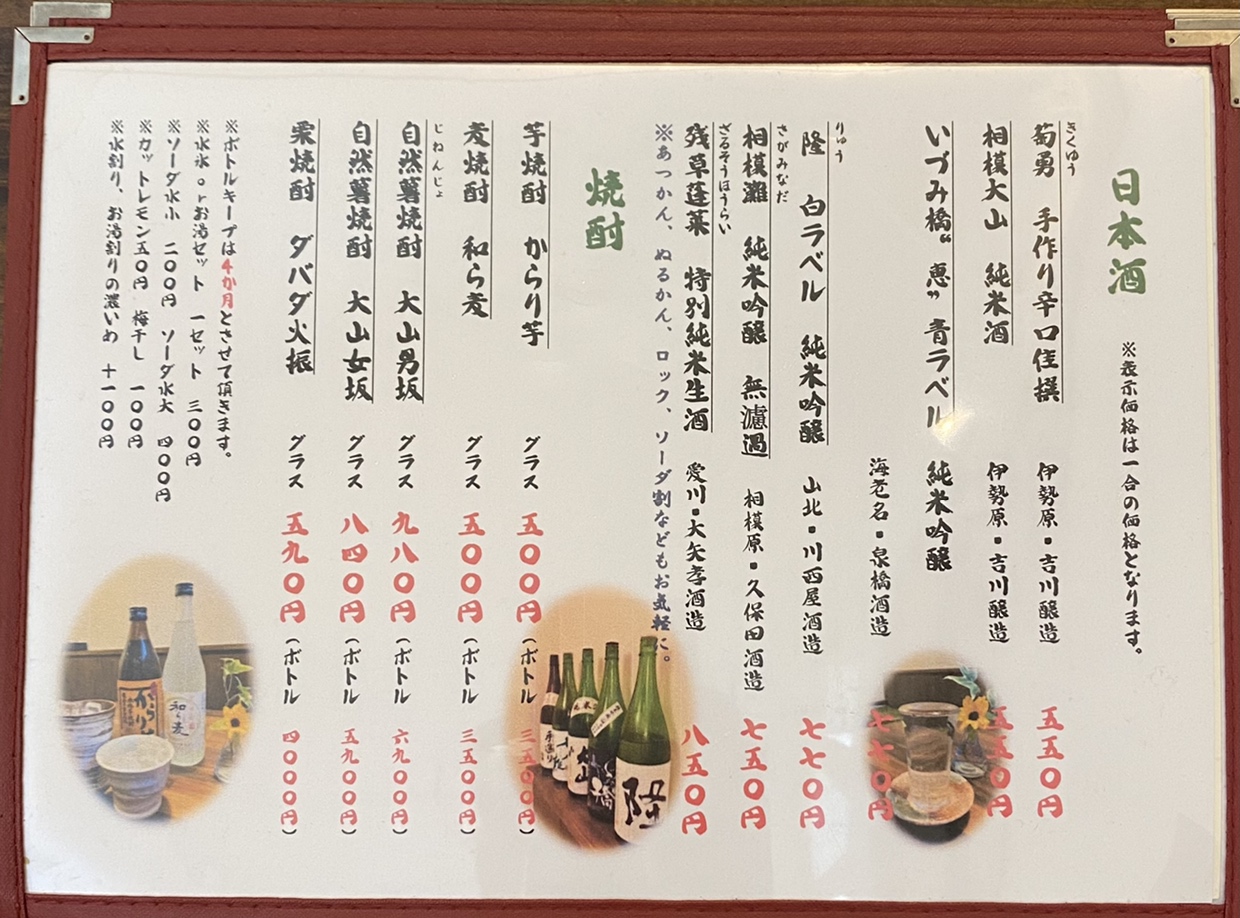 日本酒 ※表示価格は一合の価格となります。
きくゆう
菊勇 手作り辛口佳撰 伊勢原・吉川醸造 五五〇円
相模大山 純米酒 伊勢原・吉川醸造 五五〇円
いづみ橋“恵”青ラベル 純米吟醸
海老名・泉橋酒造 七七〇円
りゅう
隆 白ラベル 純米吟醸 山北・川西屋酒造 七七〇円
さがみなだ
相模灘 純米吟醸 無濾過 相模原・久保田酒造 七五〇円
ざるそうほうらい
残草蓬莱 特別純米生酒 愛川・大矢孝酒造 八五〇円
※あつかん、ぬるかん、ロック、ソーダ割などもお気軽に。
焼酎
芋焼酎 からり芋 グラス 五〇〇円 (ボトル 三五〇〇円)
麦焼酎 和ら麦 グラス 五〇〇円 (ボトル 三五〇〇円)
じねんじょ
自然薯焼酎 大山男坂 グラス 九八〇円 (ボトル 六九〇〇円)
自然薯焼酎 大山女坂 グラス 八四〇円 (ボトル 五九〇〇円)
栗焼酎 ダバダ火振 グラス 五九〇円 (ボトル 四〇〇〇円)
※ボトルキープは4か月とさせて頂きます。
※水氷orお湯セット 一セット 三〇〇円
※ソーダ水小 二〇〇円 ソーダ水大 四〇〇円
※カットレモン五〇円 梅干し 一〇〇円
※水割り、お湯割りの濃いめ 十一〇〇円
隆
和ら麦